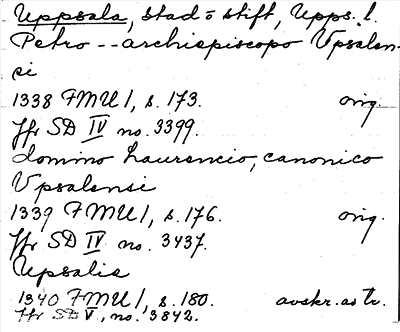 Uppsala, stad o stift, Upps. l.
Petro -- archiepiscopo Vpsalen-
si
1338 FMU I, s. 173. orig.
Jfr SD IV no. 3399.
domino Laurencio, canonico
Vpsalensi
1339 FMU I, s. 176. orig.
Jfr SD IV no. 3437.
Upsalis
1340 FMU I, s. 180. avskr. av tr.
Jfr SD V, no. 3842.